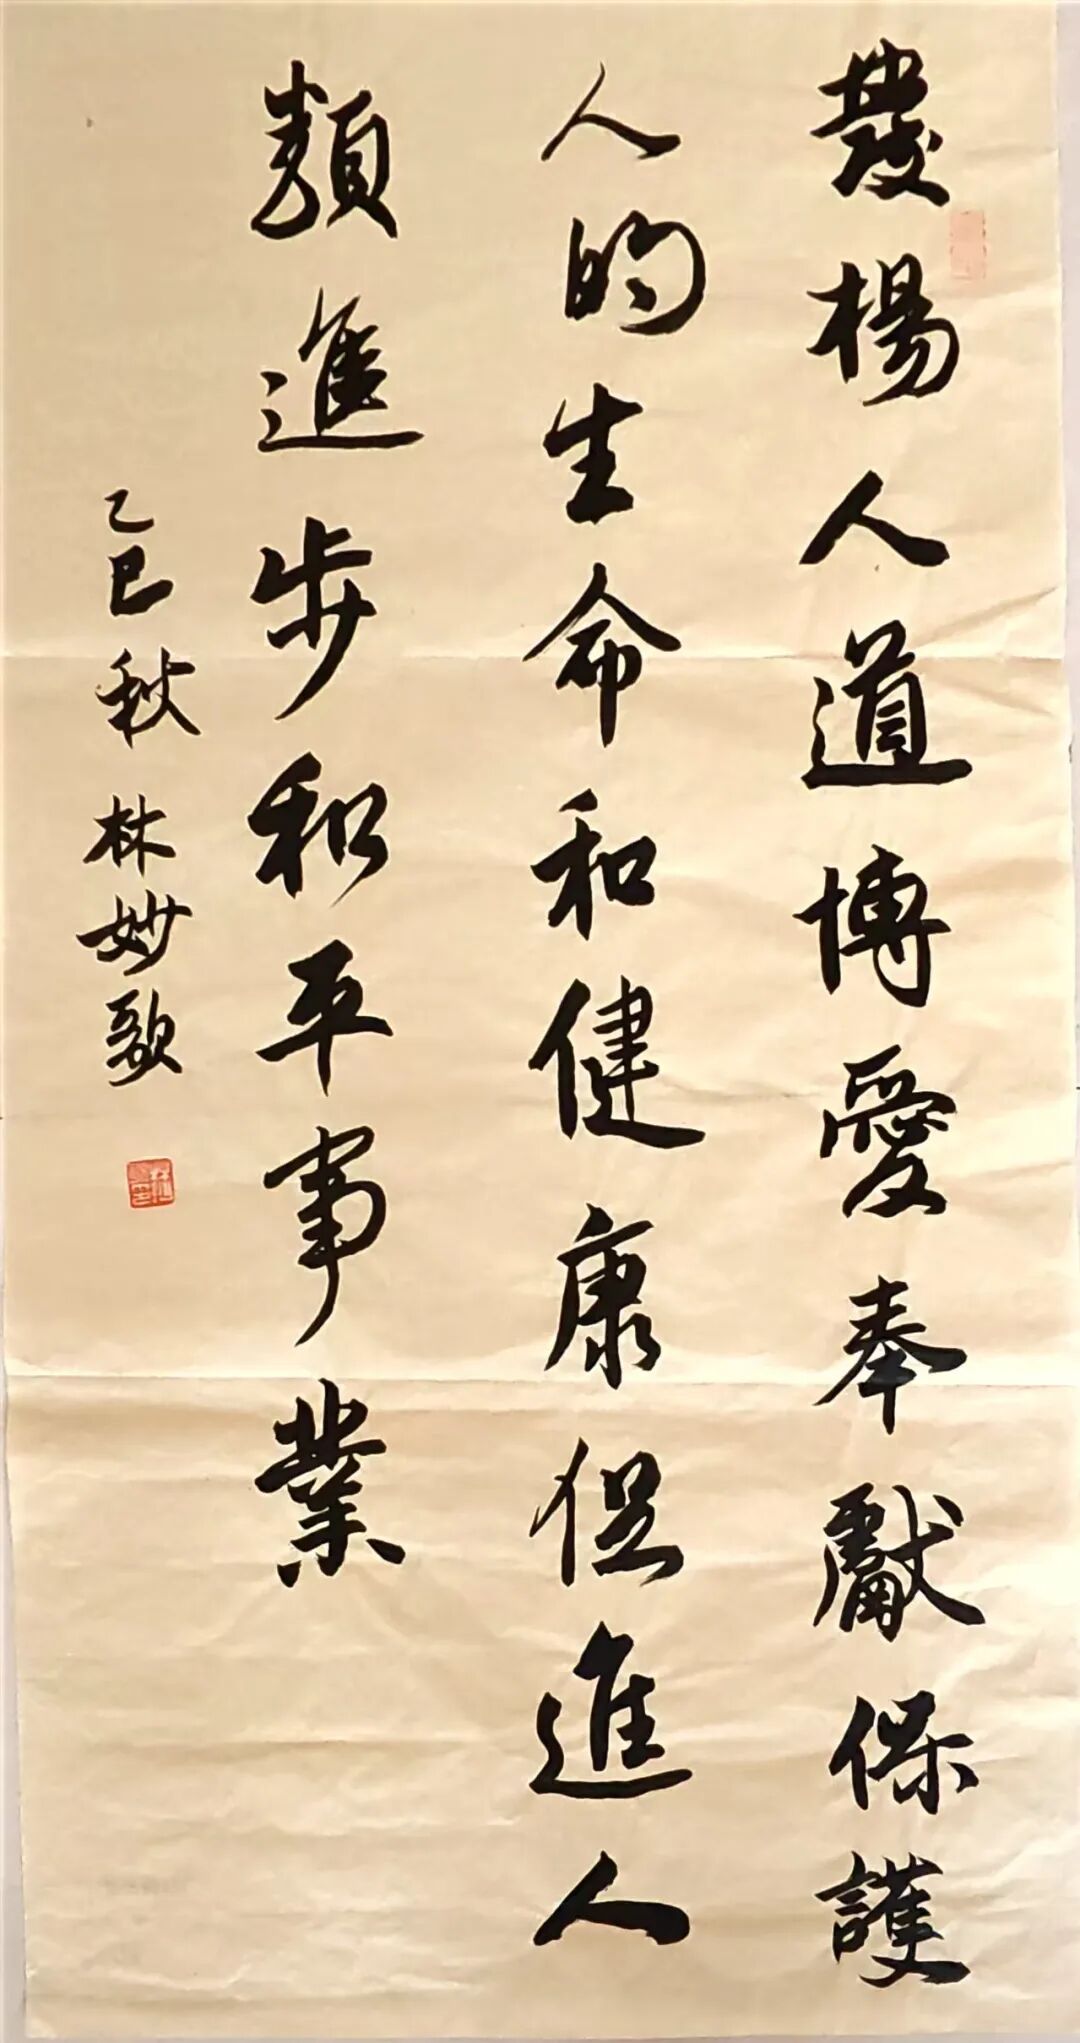 發楊人道博愛奉獻保護
人的生命和健康促進人
類進步和平事業
乙巳秋 林妙歌